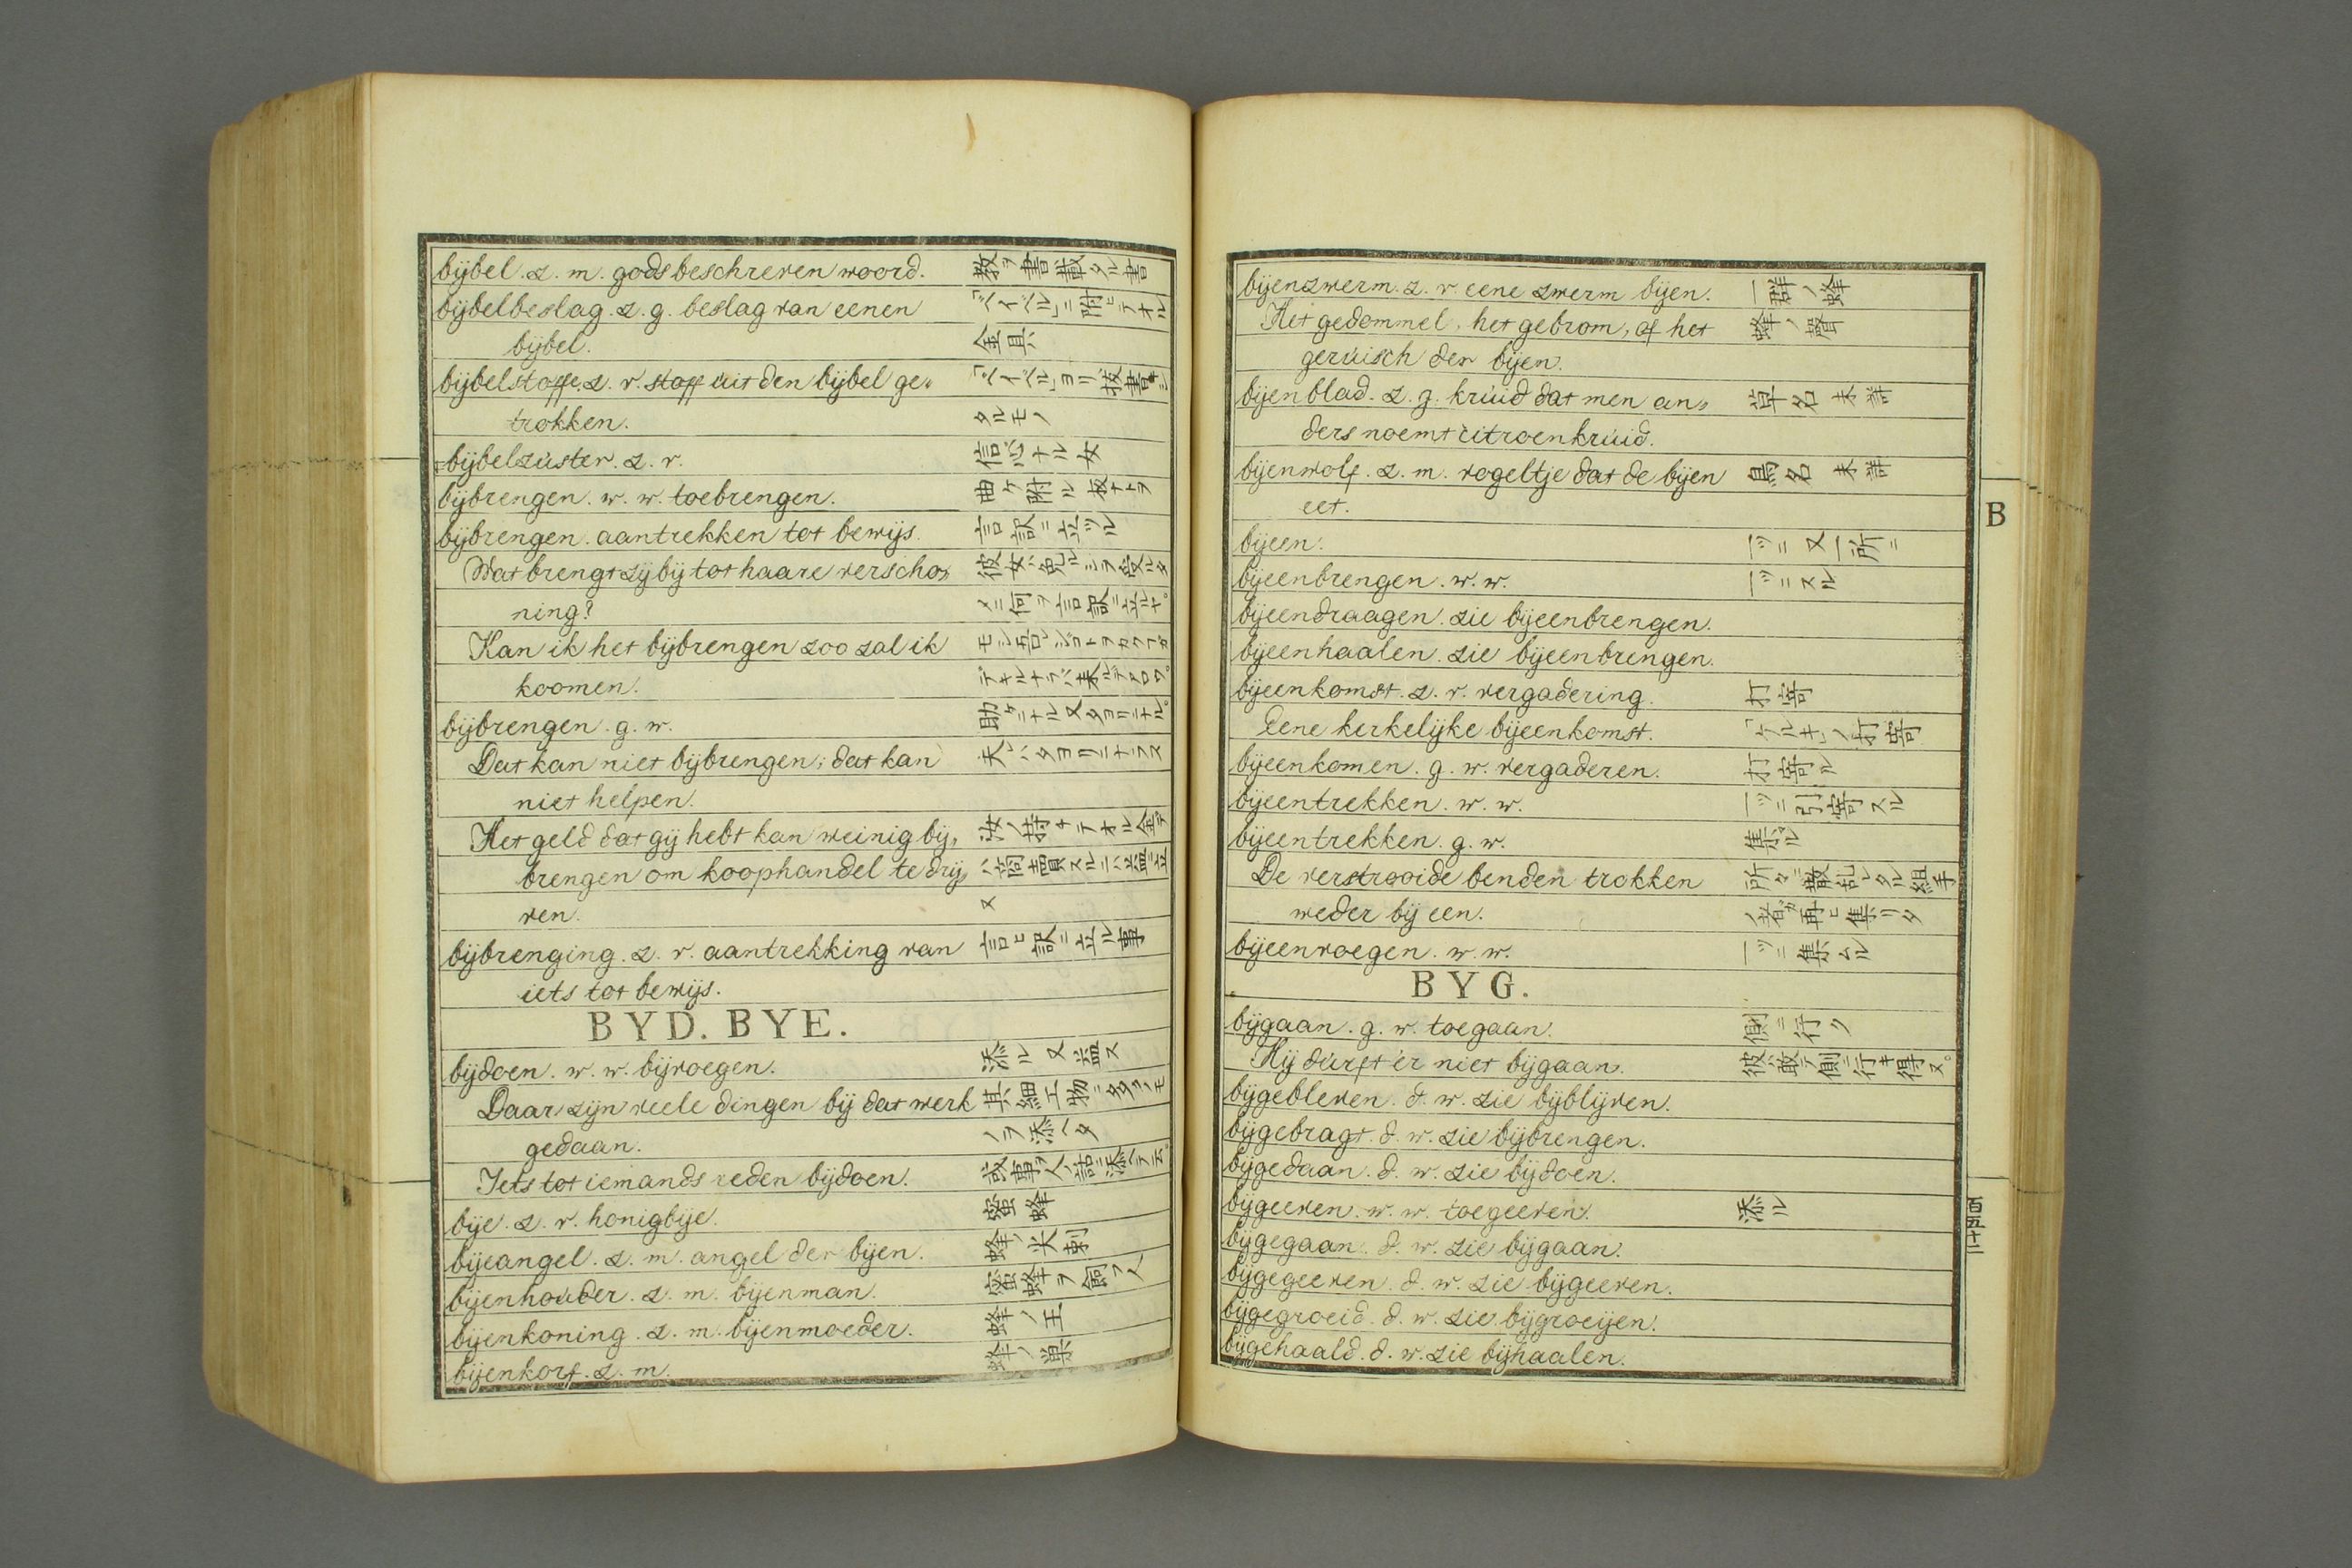 bijbel. z. m. gods beschreven woord. 教ヲ書載タル書
bijbelbeslag. z. g. beslag van eenen 「ベイベル」ニ附ヒテオル
bijbel. 金具
bijbelstoffe. z. v. stoff uit den bijbel ge- 「ベイベル」ヨリ抜書キシ
trokken. タルモノ
bijbelzuster. z. v. 信心ナル女
bijbrengen. w. w. toebrengen. 曲ケ附ル板ナトヲ
bijbrengen. aantrekken tot bewijs. 言訳ニ立ツル
Wat brengt zij bij tot haare verscho- 彼女ハ免ルシヲ受ルタ
ning? メニ何ヲ言訳ニ立ルヤ。
Kan ik het bijbrengen zoo zal ik
koomen. デキルナラバ来ルデアロウ。
bijbrengen. g. w. 助ケニナル又タヨリニナル。
Dat kan niet bijbrengen; dat kan 夫ハタヨリニナラヌ
niet helpen.
Het geld dat gij hebt kan weinig bij- 汝ノ持チテオル金デ
brengen om koophandel te drij- ハ商賣スルニハ益ニ立
ven. ヌ
bijbrenging. z. v. aantrekking van 言ヒ訳ニ立ル事
iets tot bewijs.
BYD. BYE.
bijdoen. w. w. bijvoegen. 添ル 又 益ス
Daar zijn veele dingen bij dat werk 其細工物ニ多クノモ
gedaan. ノヲ添ヘタ
Iets tot iemands reden bijdoen. 或事ヲ人ノ話ニ添ヘテ云。
bije. z. v. honigbije. 蜜蜂
bijeangel. z. m. angel der bijen. 蜂ノ尖刺
bijenhouder. z. m. bijenman. 蜜蜂ヲ飼フ人
bijenkoning. z. m. bijenmoeder. 蜂ノ王
bijenkorf. z. m. 蜂ノ巣
bijenzwerm. z. v. eene zwerm bijen. 一群ノ蜂
Het gedommel, het gebrom, of het 蜂ノ聲
geruisch der bijen.
bijenblad. z. g. kruid dat men an- 草名 未詳
ders noemt citroenkruid.
bijenwolf. z. m. vogeltje dat de bijen 鳥名 未詳
eet.
bijeen. 一ツニ 又 一所ニ
bijeenbrengen. w. w. 一ツニスル
bijeendraagen. zie bijeenbrengen.
bijeenhaalen. zie bijeenbrengen.
bijeenkomst. z. v. vergadering. 打寄
Eene kerkelijke bijeenkomst. 「ケルキ」ノ打寄
bijeenkomen. g. w. vergaderen. 打寄ル
bijeentrekken. w. w. 一ツニ引寄スル
bijeentrekken. g. w. 集ル
De verstrooide benden trokken 所々ニ散乱レタル組手
weder bij een. ノ者ガ再ヒ集リタ
bijeenvoegen. w. w. 一ツニ集ムル
BYG.
bijgaan. g. w. toegaan. 側ニ行ク
Hij durft er niet bijgaan. 彼ハ敢テ側ニ行キ得ヌ。
bijgebleven. d. w. zie bijblijven.
bijgebragt. d. w. zie bijbrengen.
bijgedaan. d. w. zie bijdoen.
bijgeeven. w. w. toegeeven. 添ル
bijgegaan. d. w. zie bijgaan.
bijgegeeven. d. w. zie bijgeeven.
bijgegroeid. d. w. zie bijgroeijen.
bijgehaald. d. w. zie bijhaalen.
B
百五十二